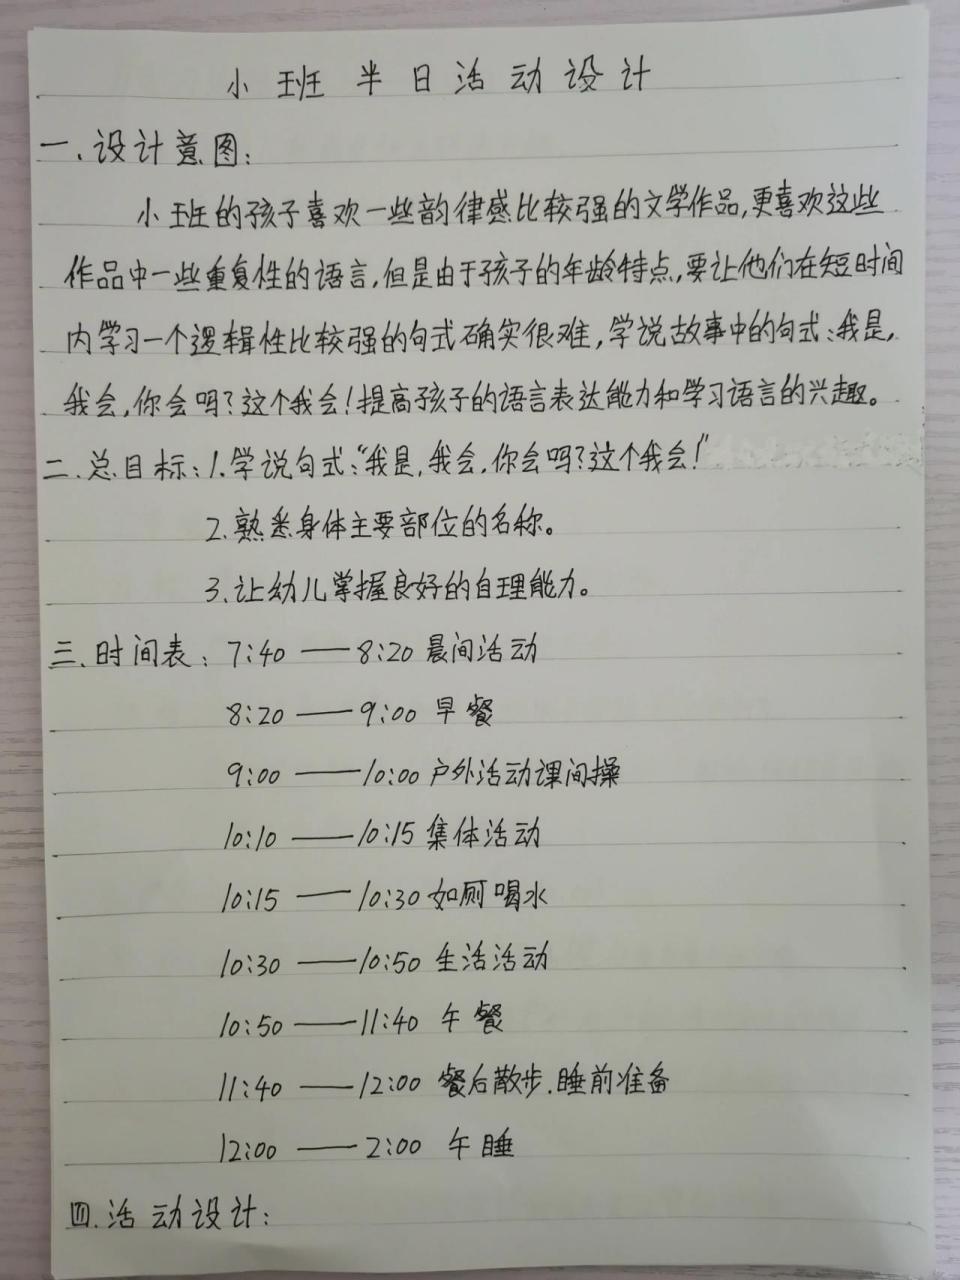 小班半日活动设计
一、设计意图：
小班的孩子喜欢一些韵律感比较强的文学作品，更喜欢这些
作品中一些重复性的语言，但是由于孩子的年龄特点，要让他们在短时间
内学习一个逻辑性比较强的句式确实很难，学说故事中的句式：我是，
我会，你会吗？这个我会！提高孩子的语言表达能力和学习语言的兴趣。
二、总目标：1.学说句式：“我是，我会，你会吗？这个我会！”
2.熟悉身体主要部位的名称。
3.让幼儿掌握良好的自理能力。
三、时间表：7:40——8:20 晨间活动
8:20——9:00 早餐
9:00——10:00 户外活动课间操
10:10——10:15 集体活动
10:15——10:30 如厕喝水
10:30——10:50 生活活动
10:50——11:40 午餐
11:40——12:00 餐后散步.睡前准备
12:00——2:00 午睡
四.活动设计：